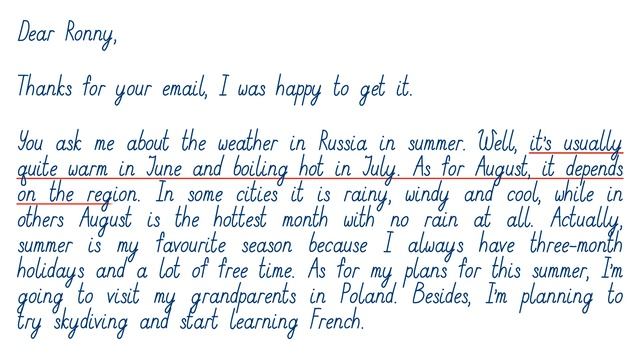 Dear Ronny,
Thanks for your email, I was happy to get it.
You ask me about the weather in Russia in summer. Well, it's usually
quite warm in June and boiling hot in July. As for August, it depends
on the region. In some cities it is rainy, windy and cool, while in
others August is the hottest month with no rain at all. Actually,
summer is my favourite season because I always have three-month
holidays and a lot of free time. As for my plans for this summer, I'm
going to visit my grandparents in Poland. Besides, I'm planning to
try skydiving and start learning French.